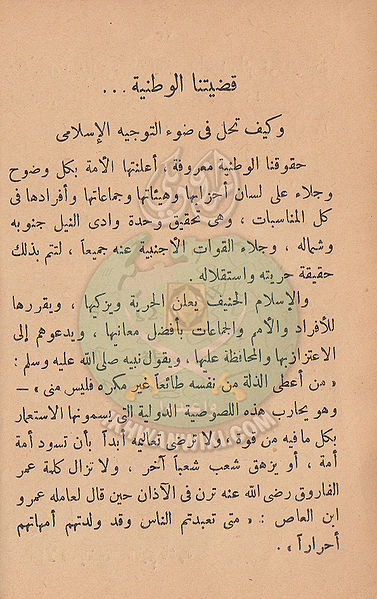 قضيتنا الوطنية ...
وكيف تحل فى ضوء التوجيه الإسلامى
حقوقنا الوطنية معروفة ، أعلنتها الأمة بكل وضوح
وجلاء على لسان أحزابها وهيئاتها وجماعاتها وأفرادها فى
كل المناسبات ، وهى تحقيق وحدة وادى النيل جنوبه
وشماله ، وجلاء القوات الأجنبية عنه جميعاً ، لتتم بذلك
حقيقة حريته واستقلاله .
والإسلام الحنيف يعلن الحرية ويزكيها ، ويقررها
للأفراد والأمم والجماعات بأفضل معانيها ، ويدعوهم إلى
الاعتزاز بها والمحافظة عليها ، ويقول نبيه صلى الله عليه وسلم :
« من أعطى الذلة من نفسه طائعاً غير مكره فليس منى » —
وهو يحارب هذه اللصوصية الدولية التى يسمونها الاستعمار
بكل مافيه من قوة ، ولا ترضى تعاليمه أبداً بأن تسود أمة
أمة ، أو يرهق شعب شعباً آخر ، ولا تزال كلمة عمر
الفاروق رضى الله عنه ترن فى الآذان حين قال لعامله عمرو
ابن العاص : « متى تعبدتم الناس وقد ولدتهم أمهاتهم
أحراراً » .